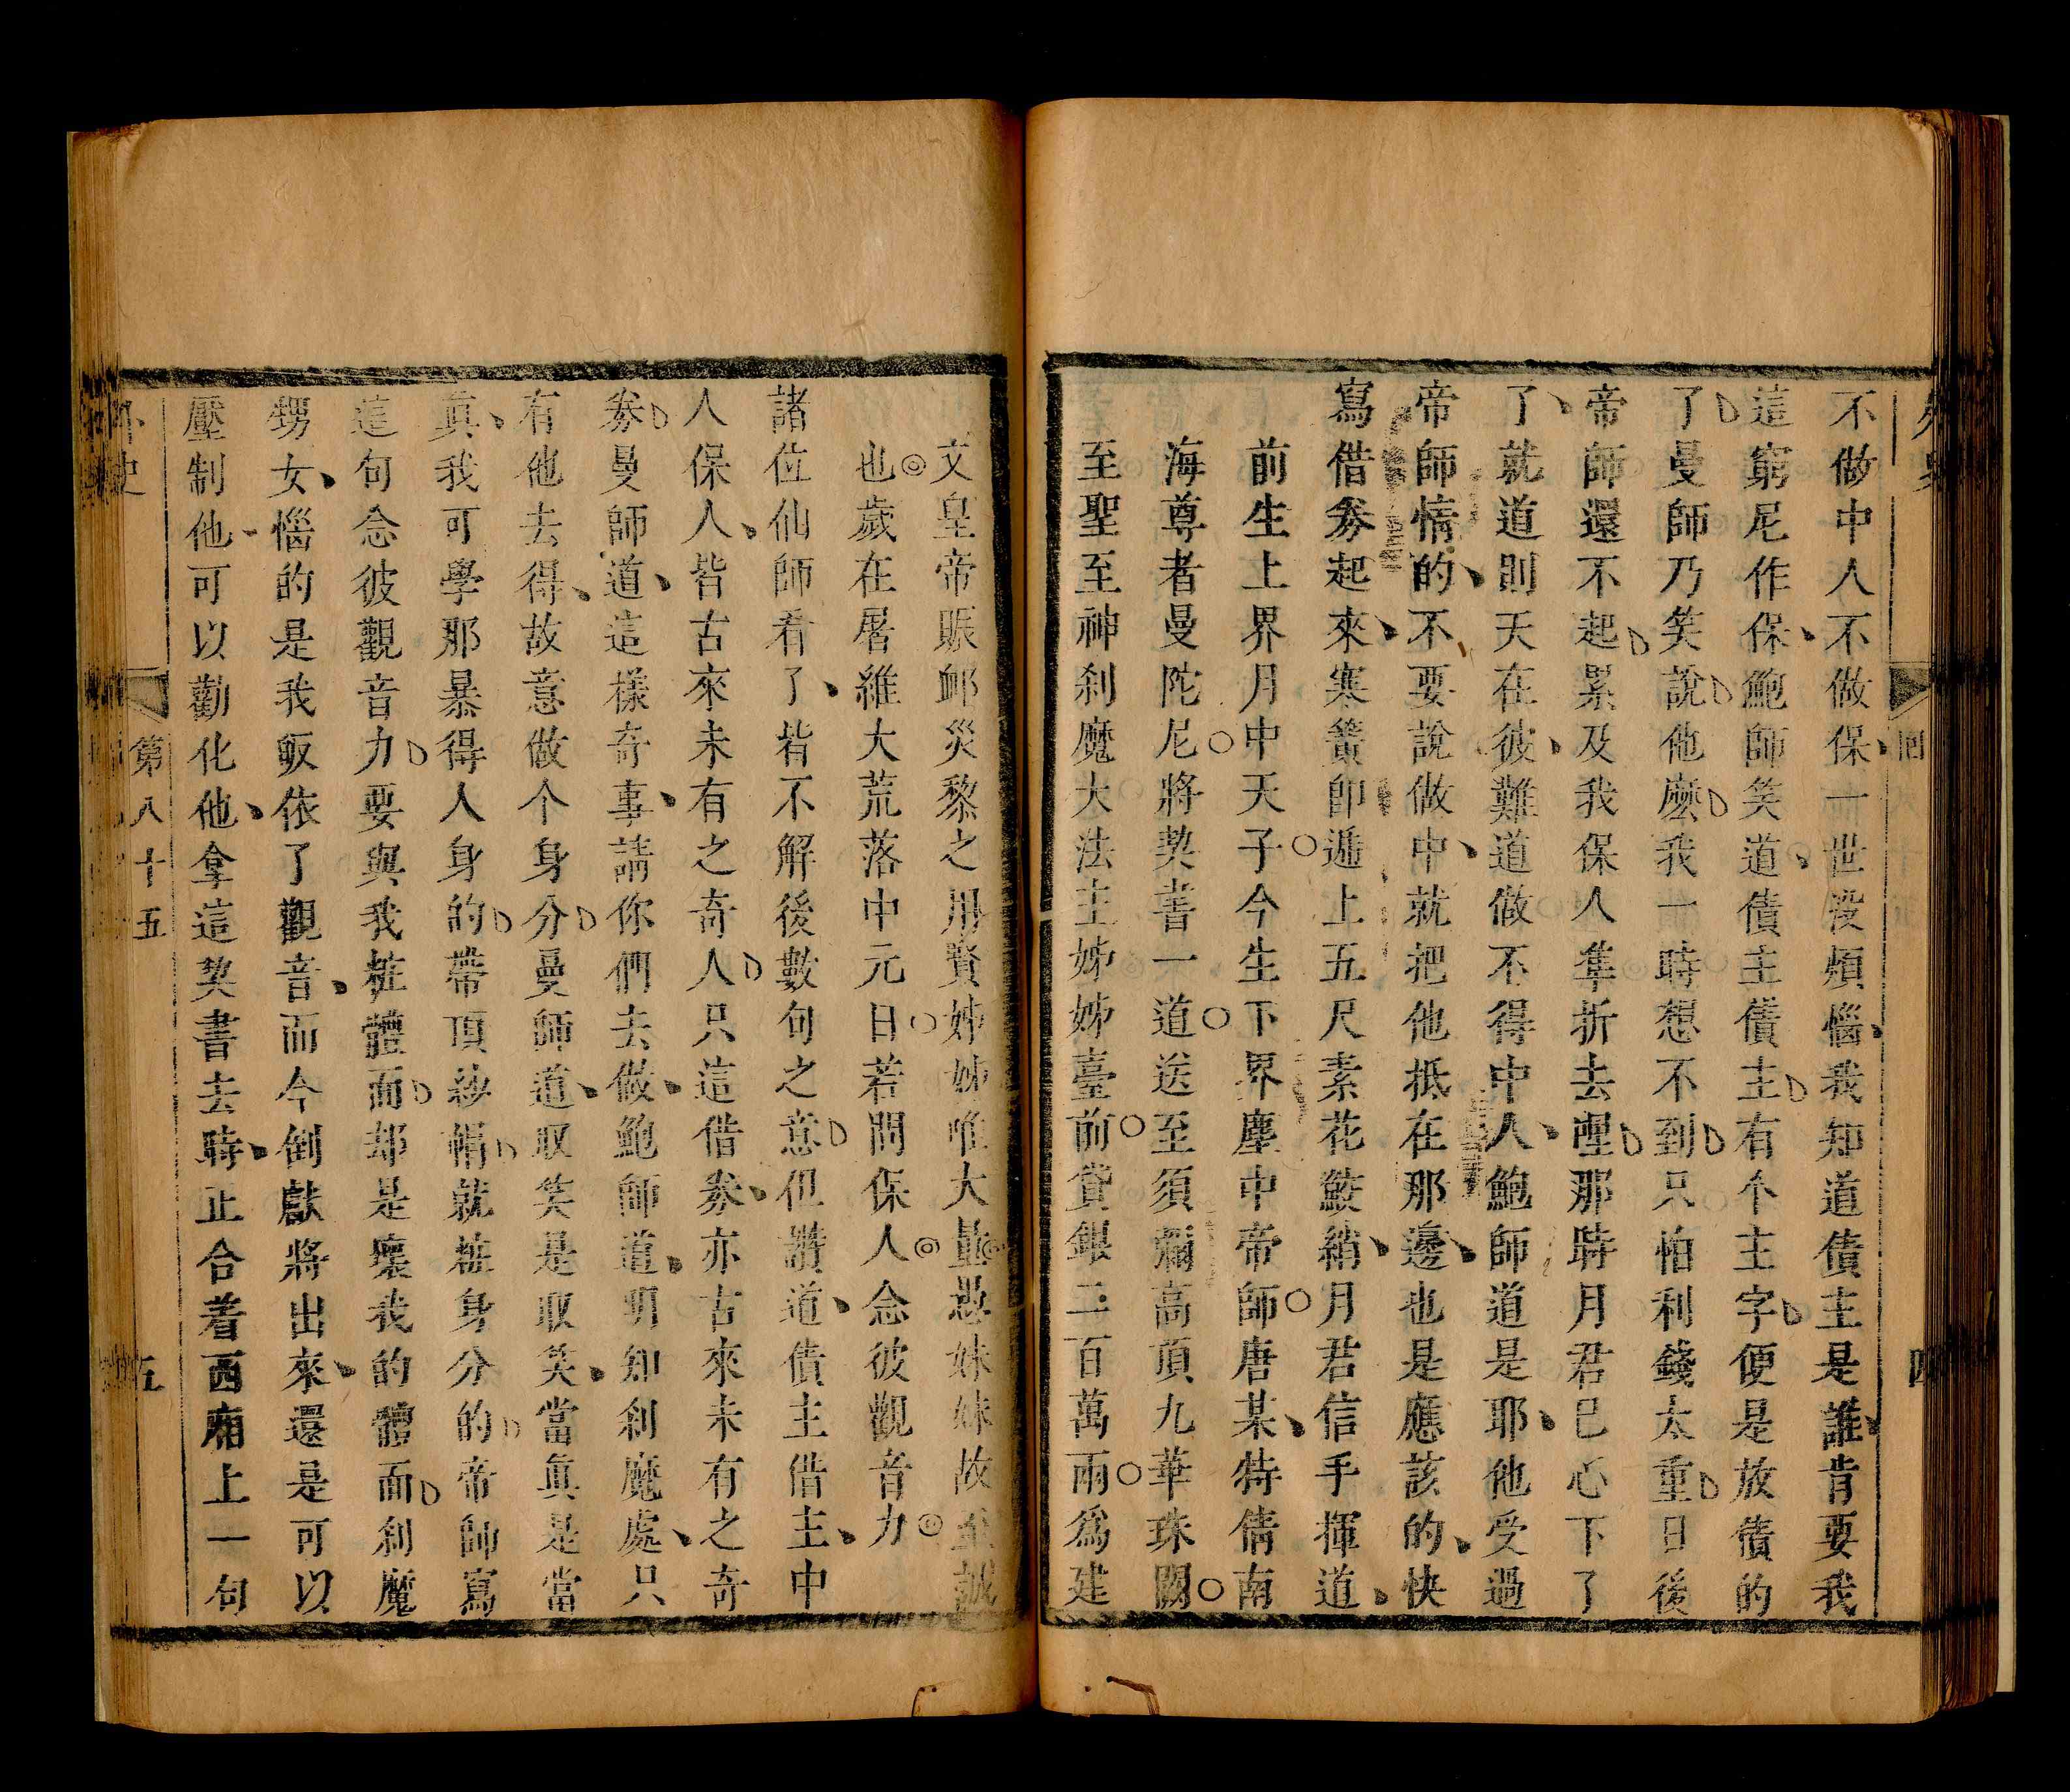 不做中人不做保一世沒煩惱我知道債主是誰肯要我
這窮尼作保鮑師笑道債主債主有个主字便是放債的
了曼師乃笑說他麼我一時想不到只怕利錢太重日後
帝師還不起累及我保人準折去哩那時月君已心下了
了就道則天在彼難道做不得中人鮑師道是耶他受過
帝師情的不要說做中就把他抵在那邊也是應該的快
寫借劵起來寒簧卽遞上五尺素花鮫綃月君信手揮道
前生上界月中天子今生下界塵中帝師唐某特倩南
海尊者曼陀尼將契書一道送至須彌高頂九華珠闕
至聖至神刹魔大法主姊姊臺前貸銀二百萬兩爲建
文皇帝賑邺災黎之用賢姊姊唯大量愚妹妹故至誠
也歲在屠維大荒落中元日若問保人念彼觀音力
諸位仙師看了皆不解後數句之意但讚道債主借主中
人保人皆古來未有之奇人只這借劵亦古來未有之奇
劵曼師道這樣奇事請你們去做鮑師道明知刹魔處只
有他去得故意做个身分曼師道取笑是取笑當眞是當
眞我可學那暴得人身的帶頂紗帽就粧身分的帝師寫
這句念彼觀音力要與我粧體面却是壞我的體面刹魔
甥女惱的是我皈依了觀音而今倒獻將出來還是可以
壓制他可以勸化他拿這契書去時正合着西廂上一句
外史
第八十五
五